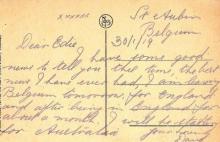 St Aubin
Belgium
30/1/19
Dear Edie
I have some good
news to tell you this time, the best
news I have ever had, I am leaving
Belgium tomorrow for England
and after being in England for
about a month I will be
for Australia